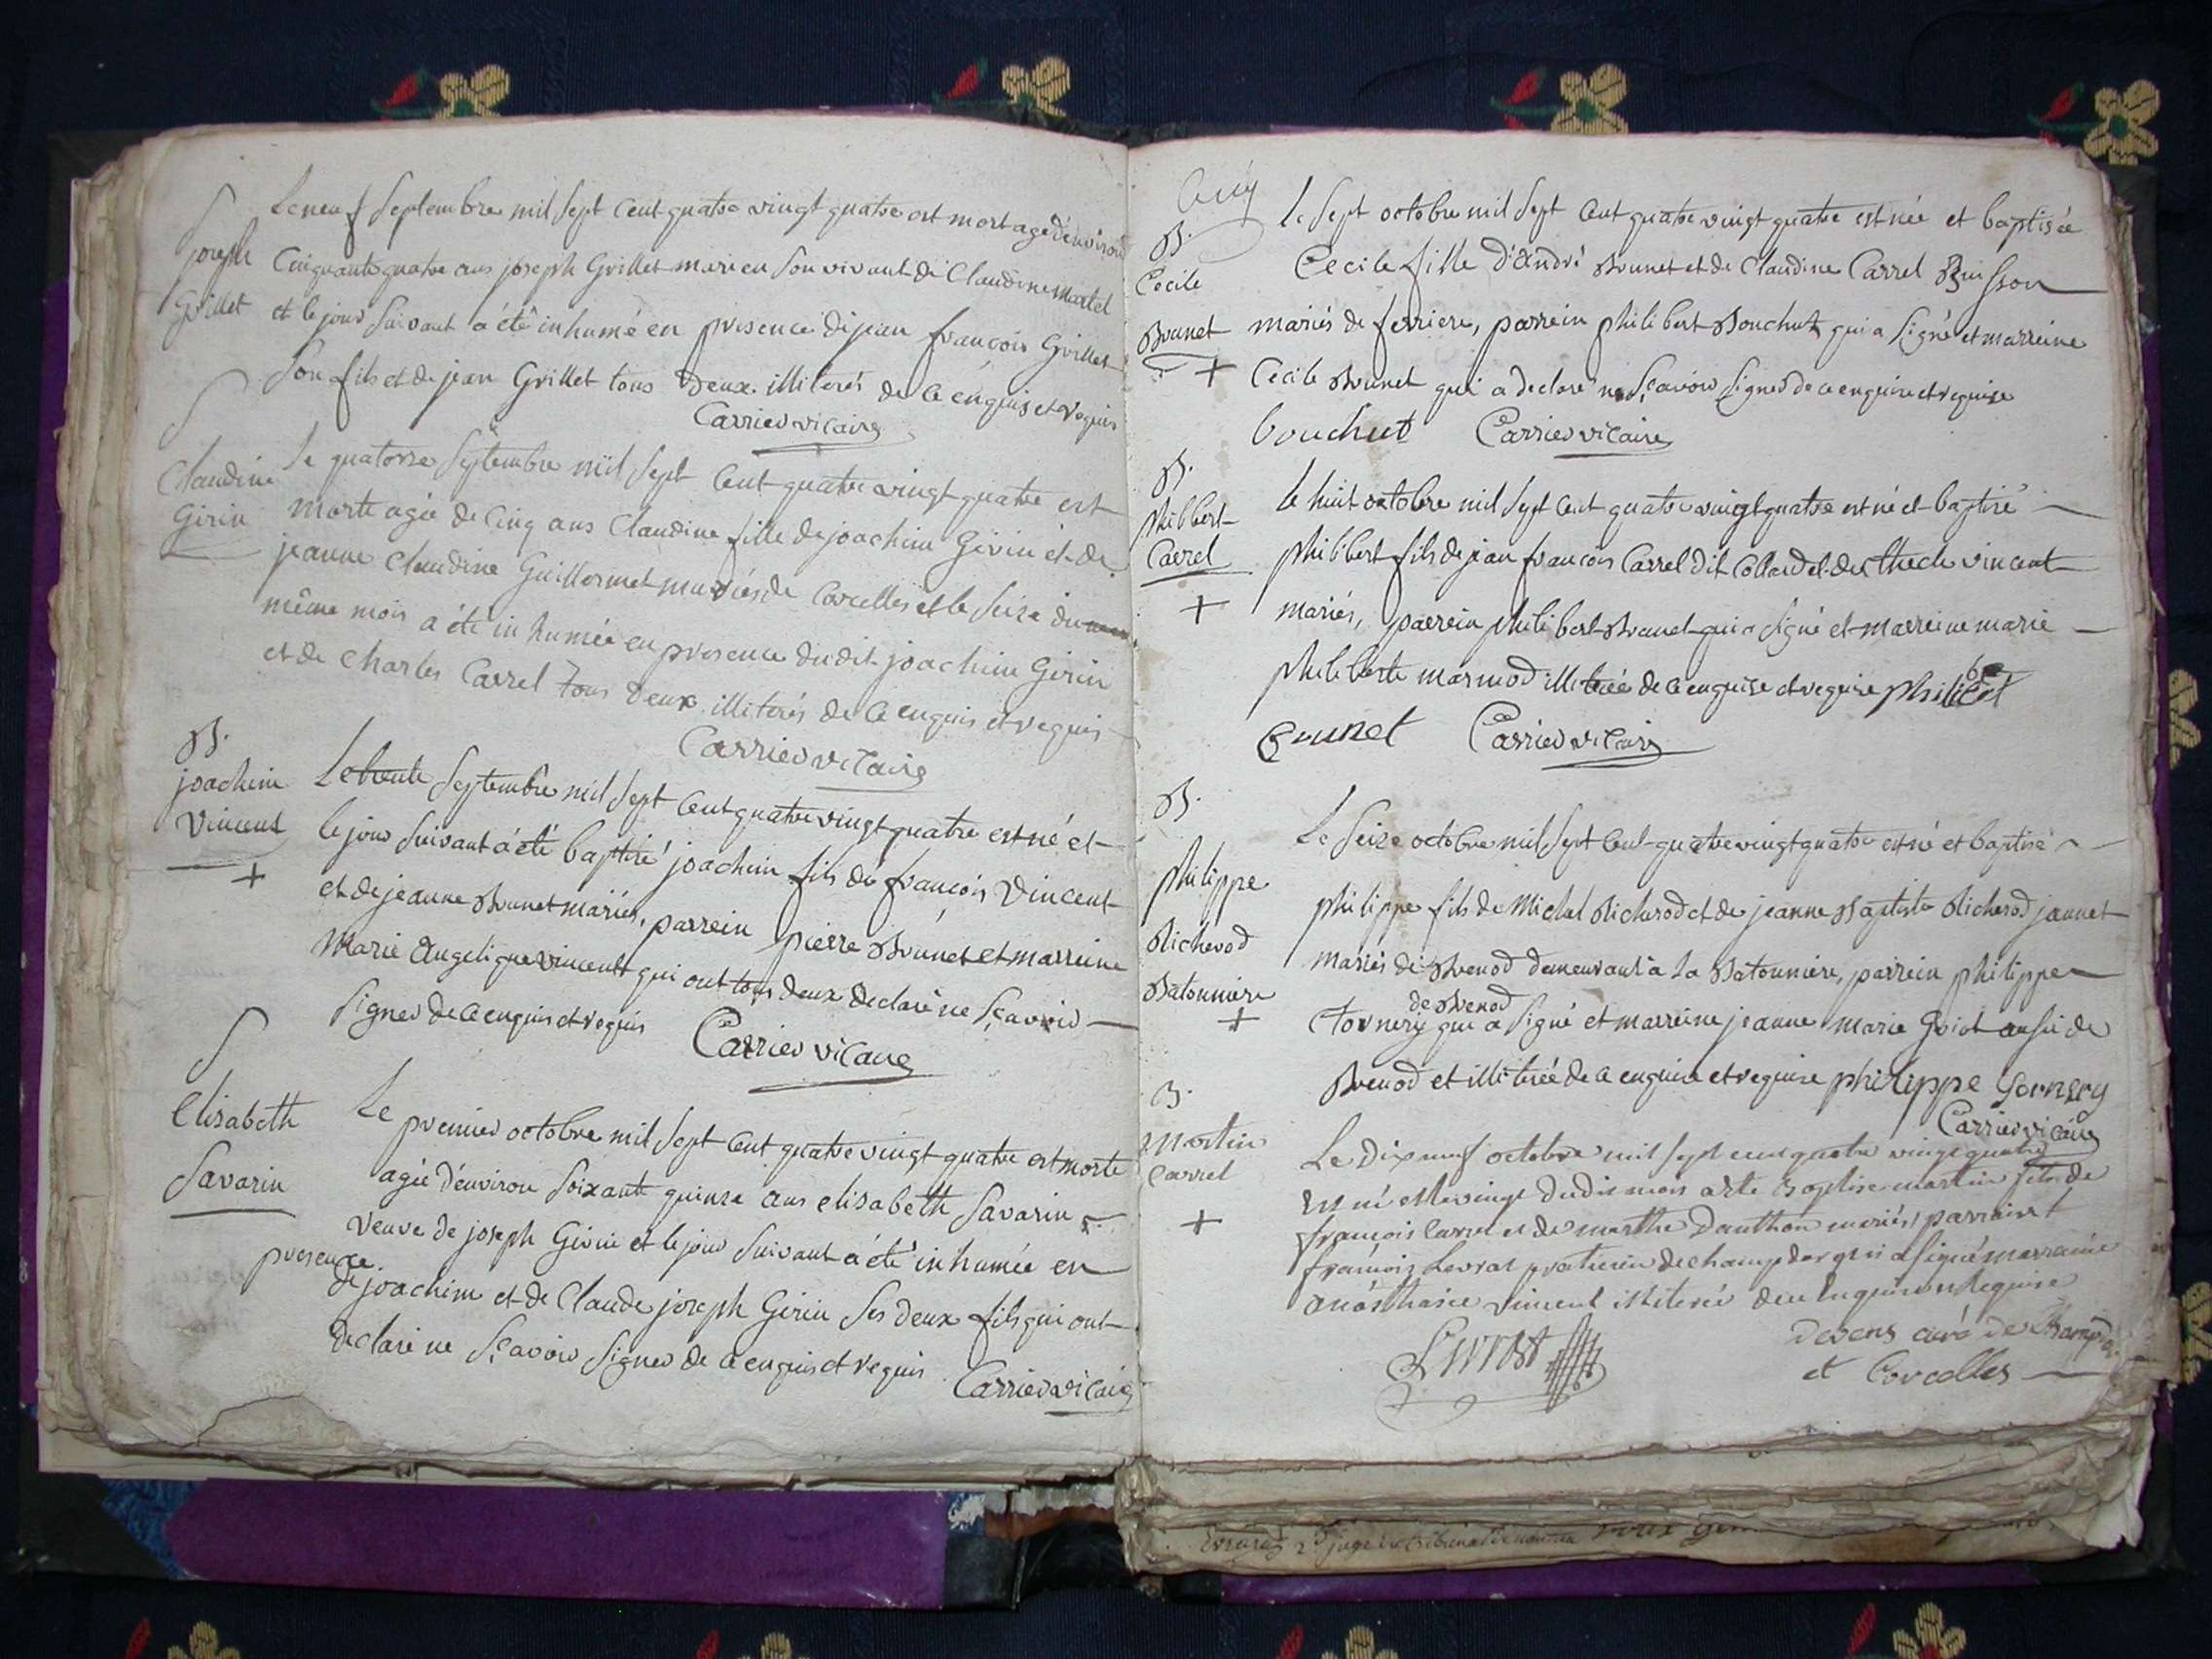 S
joseph
Grillet
Le neuf Septembre mil Sept Cent quatre vingt quatre est mort agé d'environ
Cinquante quatre ans joseph Grillet mari en Son vivant de Claudine Martel
et le jour Suivant a été inhumé en presence de jean françois Grillet
Son fils et de jean Grillet tous Deux illiterés de ce enquis et requis
Carrier vicaire
S
Claudine
Girin
Le quatorze Septembre mil Sept Cent quatre vingt quatre est
morte agée de Cinq ans Claudine fille de joachim Girin et de
jeanne Claudine Guillermet mariés de Corcelles et le Seize du
même mois a été inhumée en presence dudit joachim Girin
et de Charles Carrel tous Deux illiterés de ce enquis et requis
Carrier vicaire
B.
joachim
Vincent
+
Le trente Septembre mil Sept Cent quatre vingt quatre est né et
le jour Suivant a été baptisé joachim fils de françois Vincent
et de jeanne Brunet mariés, parrein pierre Brunet et marreine
Marie Angelique vincent qui ont tous deux declaré ne Sçavoir
Signer de ce enquis et requis Carrier vicaire
S
Elisabeth
Savarin
Le premier octobre mil Sept Cent quatre vingt quatre est morte
agée d'environ Soixante quinze ans elisabeth Savarin
veuve de joseph Girin et le jour Suivant a été inhumée en
presence
de joachim et de Claude joseph Girin Ses deux fils qui ont
declaré ne Sçavoir Signer de ce enquis et requis Carrier vicaire
B.
Cecile
Brunet
+
Le Sept octobre mil Sept Cent quatre vingt quatre est née et baptisée
Cecile fille d'André Brunet et de Claudine Carrel Buisson
mariés de ferriere, parrein philibert Bouchut qui a Signé et marreine
Cecile Brunet qui a declaré ne Sçavoir Signer de ce enquise et requise
bouchut Carrier vicaire
B.
philibert
Carrel
+
le huit octobre mil Sept Cent quatre vingt quatre est né et baptisé
philibert fils de jean françois Carrel dit Collardel et de Thecle vincent
mariés, parrein philibert Brunet qui a Signé et marreine marie
philiberte marmod illiterée de ce enquise et requise philibert
brunet Carrier vicaire
B.
philippe
Richerod
Batonniere
+
Le Seize octobre mil Sept Cent quatre vingt quatre est né et baptisé
philippe fils de Michel Richerod et de jeanne Baptiste Richerod jannet
mariés de Brenod demeurant a La Batonniere, parrein philippe
de Brenod
Tornery qui a Signé et marreine jeanne marie Guiot aussi de
Brenod et illiterée de ce enquise et requise philippe Gornery
Carrier vicaire
B.
Martin
Carrel
+
Le Dix neuf octobre mil sept cent quatre vingt quatre
est né et le vingt dudit mois a été Baptisé martin fils de
françois Carrel et de marthe Danthon mariés, parrain
françois Levrat praticien de champdor qui a signé marraine
anasthasie vincent illiterée de ce enquise et Requise
Levrat
devens curé de Champdor
et Corcelles